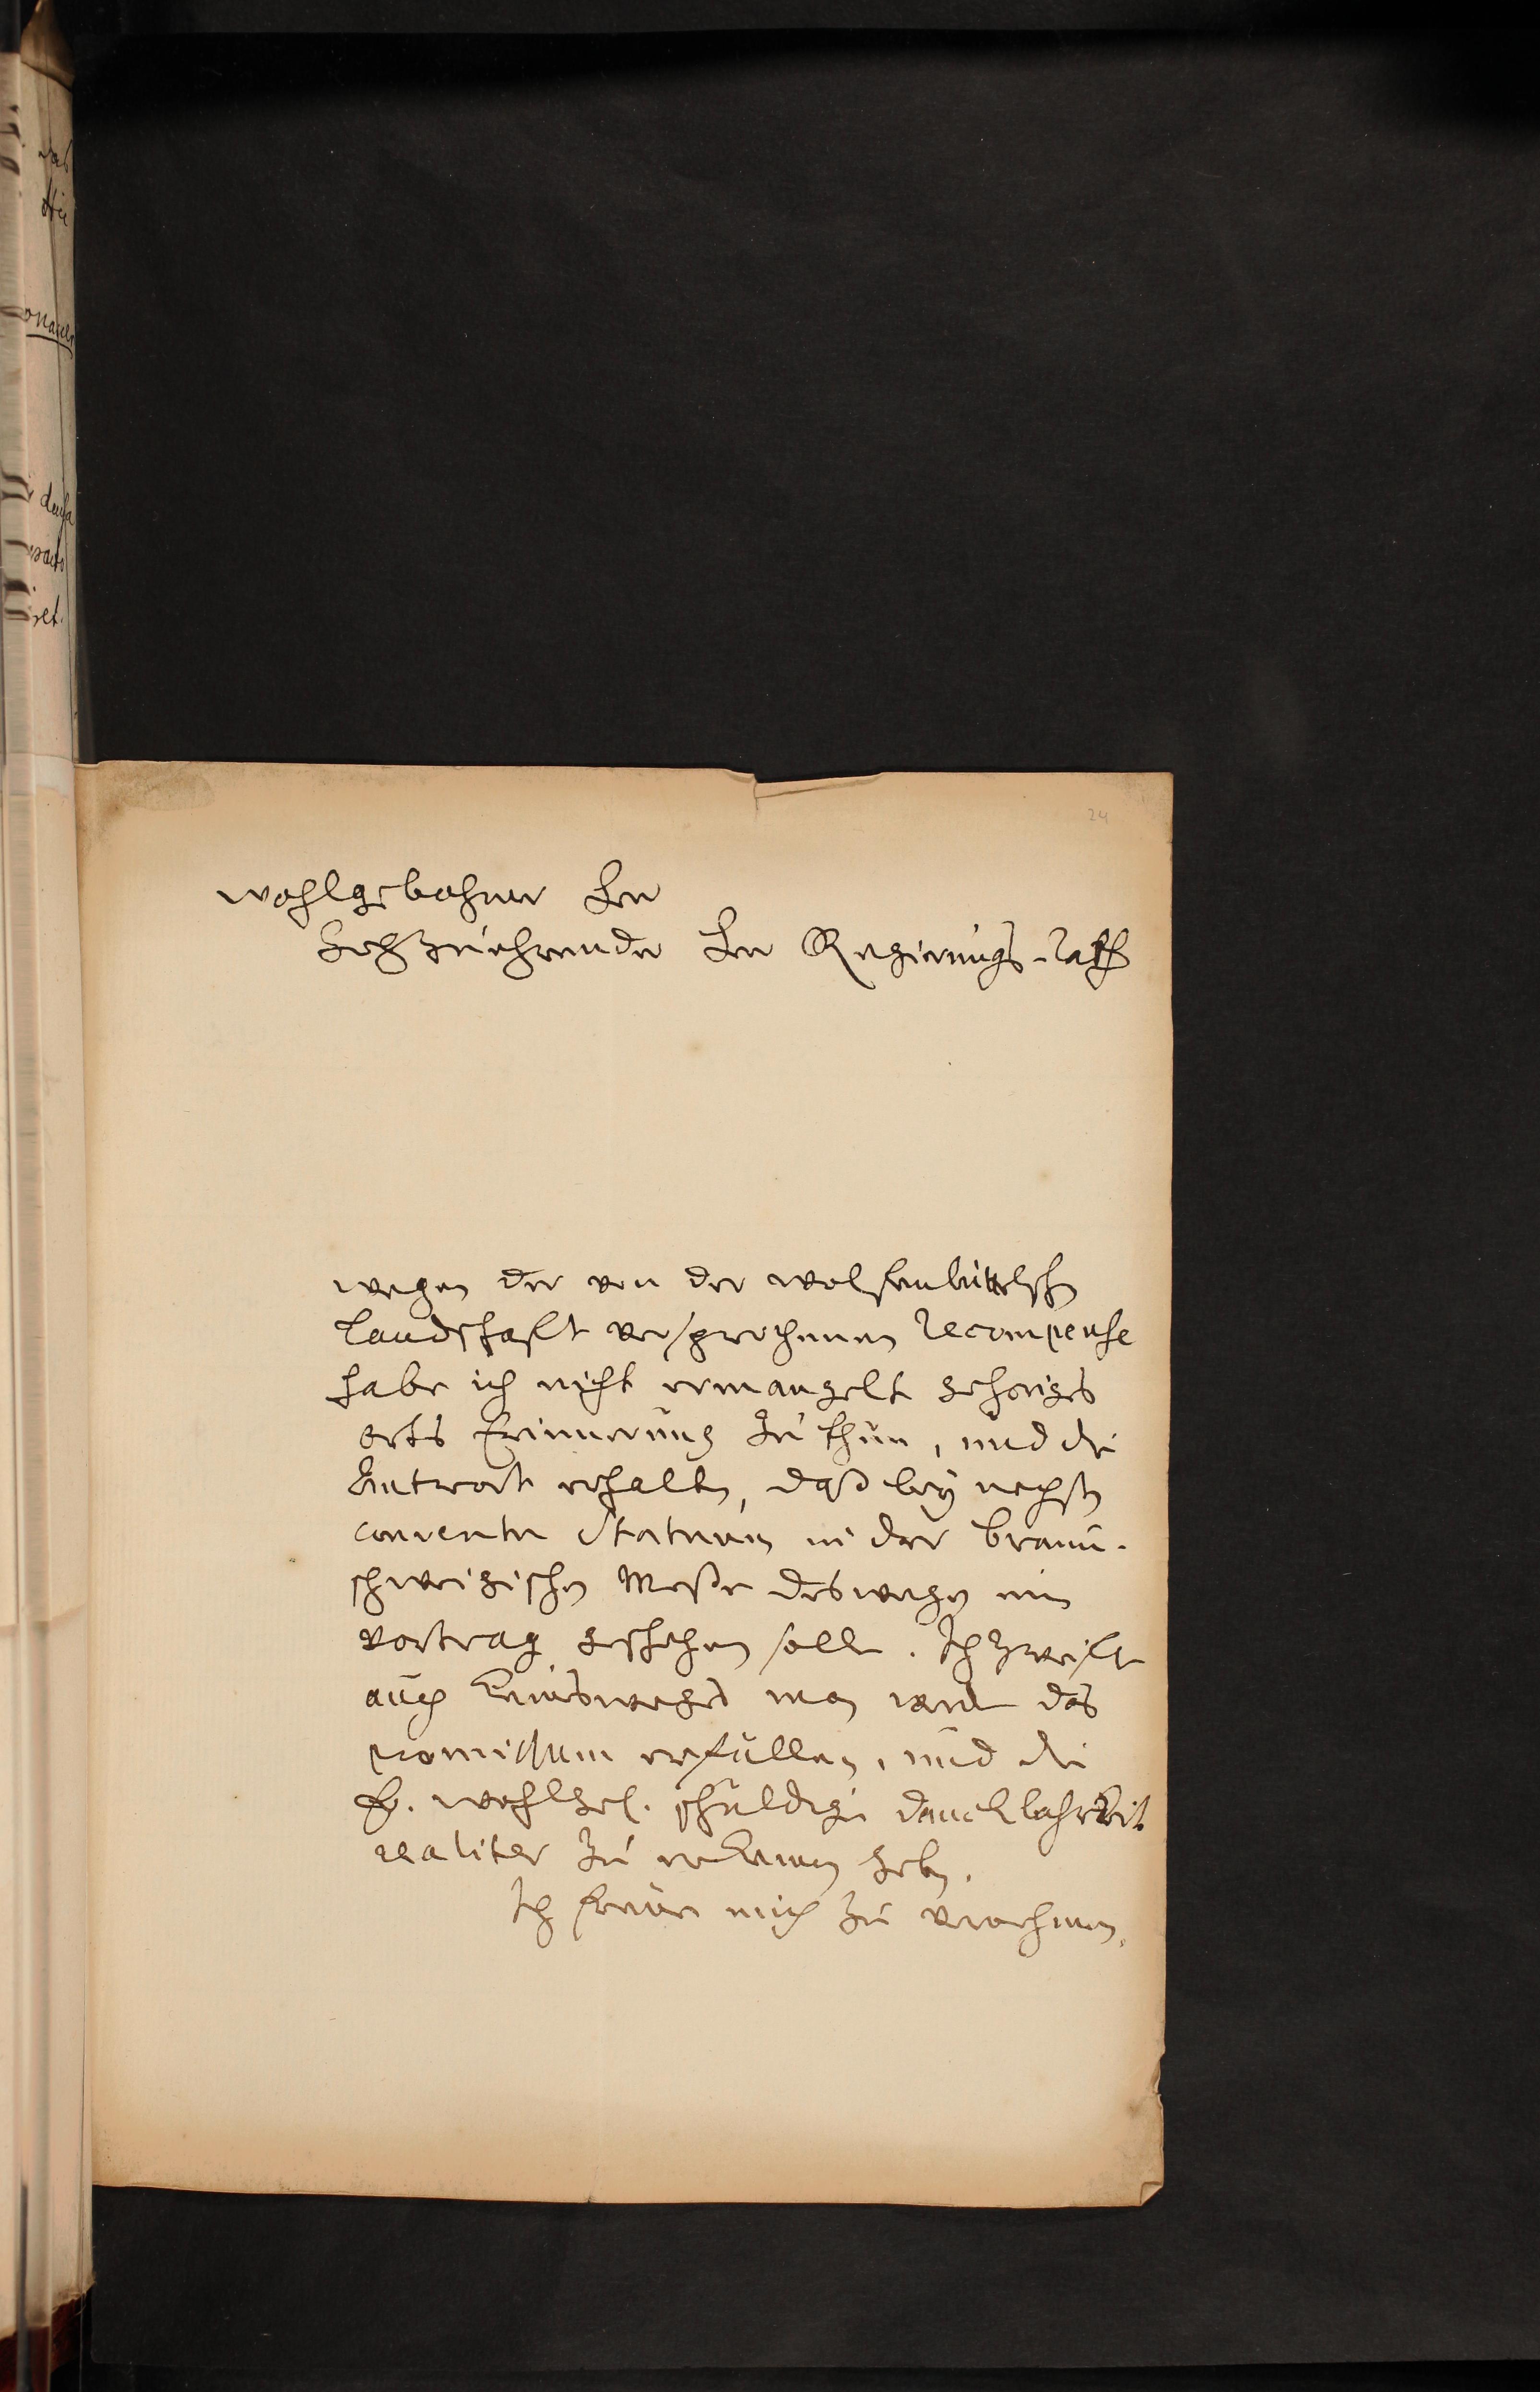 24
wohlgebohrner Herr
Hochzuehrender Herr Regierungs-Rath
wegen der von der wolfenbüttelsch.
Landschafft versprochenen Recompense
habe ich nicht ermangelt gehöriges
orts Erinnerung zu thun, und die
Antwort erhalten, daß bey nechsten
conventu Statuum in der braun-
schweigischen Meße deswegen ein
vortrag geschehen solle. Ich zweifle
auch keinesweges man werde das
promissum erfüllen, und die
E. wohlgeb. schuldige danckbahrkeit
realiter zu erkennen geben.
Ich freue mich zu vernehmen,